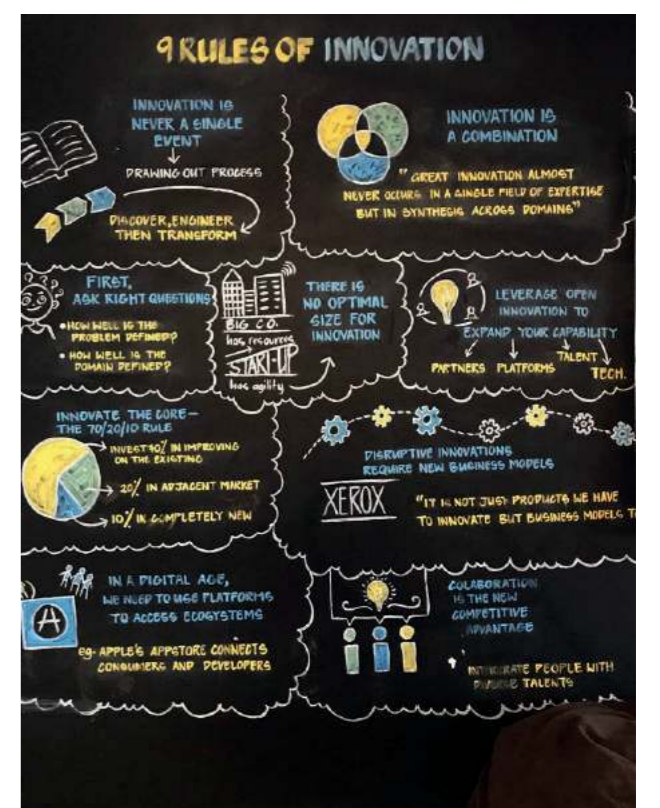 9 RULES OF INNOVATION
INNOVATION IS
NEVER A SINGLE
EVENT
DRAWING OUT PROCESS
DISCOVER, ENGINEER
THEN TRANSFORM
INNOVATION IS
A COMBINATION
"GREAT INNOVATION ALMOST
NEVER OCCURS IN A SINGLE FIELD OF EXPERTISE
BUT IN SYNTHESIS ACROSS DOMAINS"
FIRST,
ASK RIGHT QUESTIONS
• HOW WELL IS THE
PROBLEM DEFINED?
• HOW WELL IS THE
DOMAIN DEFINED?
BIG CO.
has resources
START-UP
has agility
THERE IS
NO OPTIMAL
SIZE FOR
INNOVATION
LEVERAGE OPEN
INNOVATION TO
EXPAND YOUR CAPABILITY
PARTNERS PLATFORMS TALENT TECH.
INNOVATE THE CORE-
THE 70/20/10 RULE
INVEST % IN IMPROVING
ON THE EXISTING
20% IN ADJACENT MARKET
10% IN COMPLETELY NEW
DISRUPTIVE INNOVATIONS
REQUIRE NEW BUSINESS MODELS
XEROX
"IT IS NOT JUST PRODUCTS WE HAVE
TO INNOVATE BUT BUSINESS MODELS
IN A DIGITAL AGE,
WE NEED TO USE PLATFORMS
TO ACCESS ECOSYSTEMS
A
eg- APPLE'S APPSTORE CONNECTS
CONSUMERS AND DEVELOPERS
COLABORATION
IS THE NEW
COMPETITIVE
ADVANTAGE
PEOPLE WITH
DIVERSE TALENTS